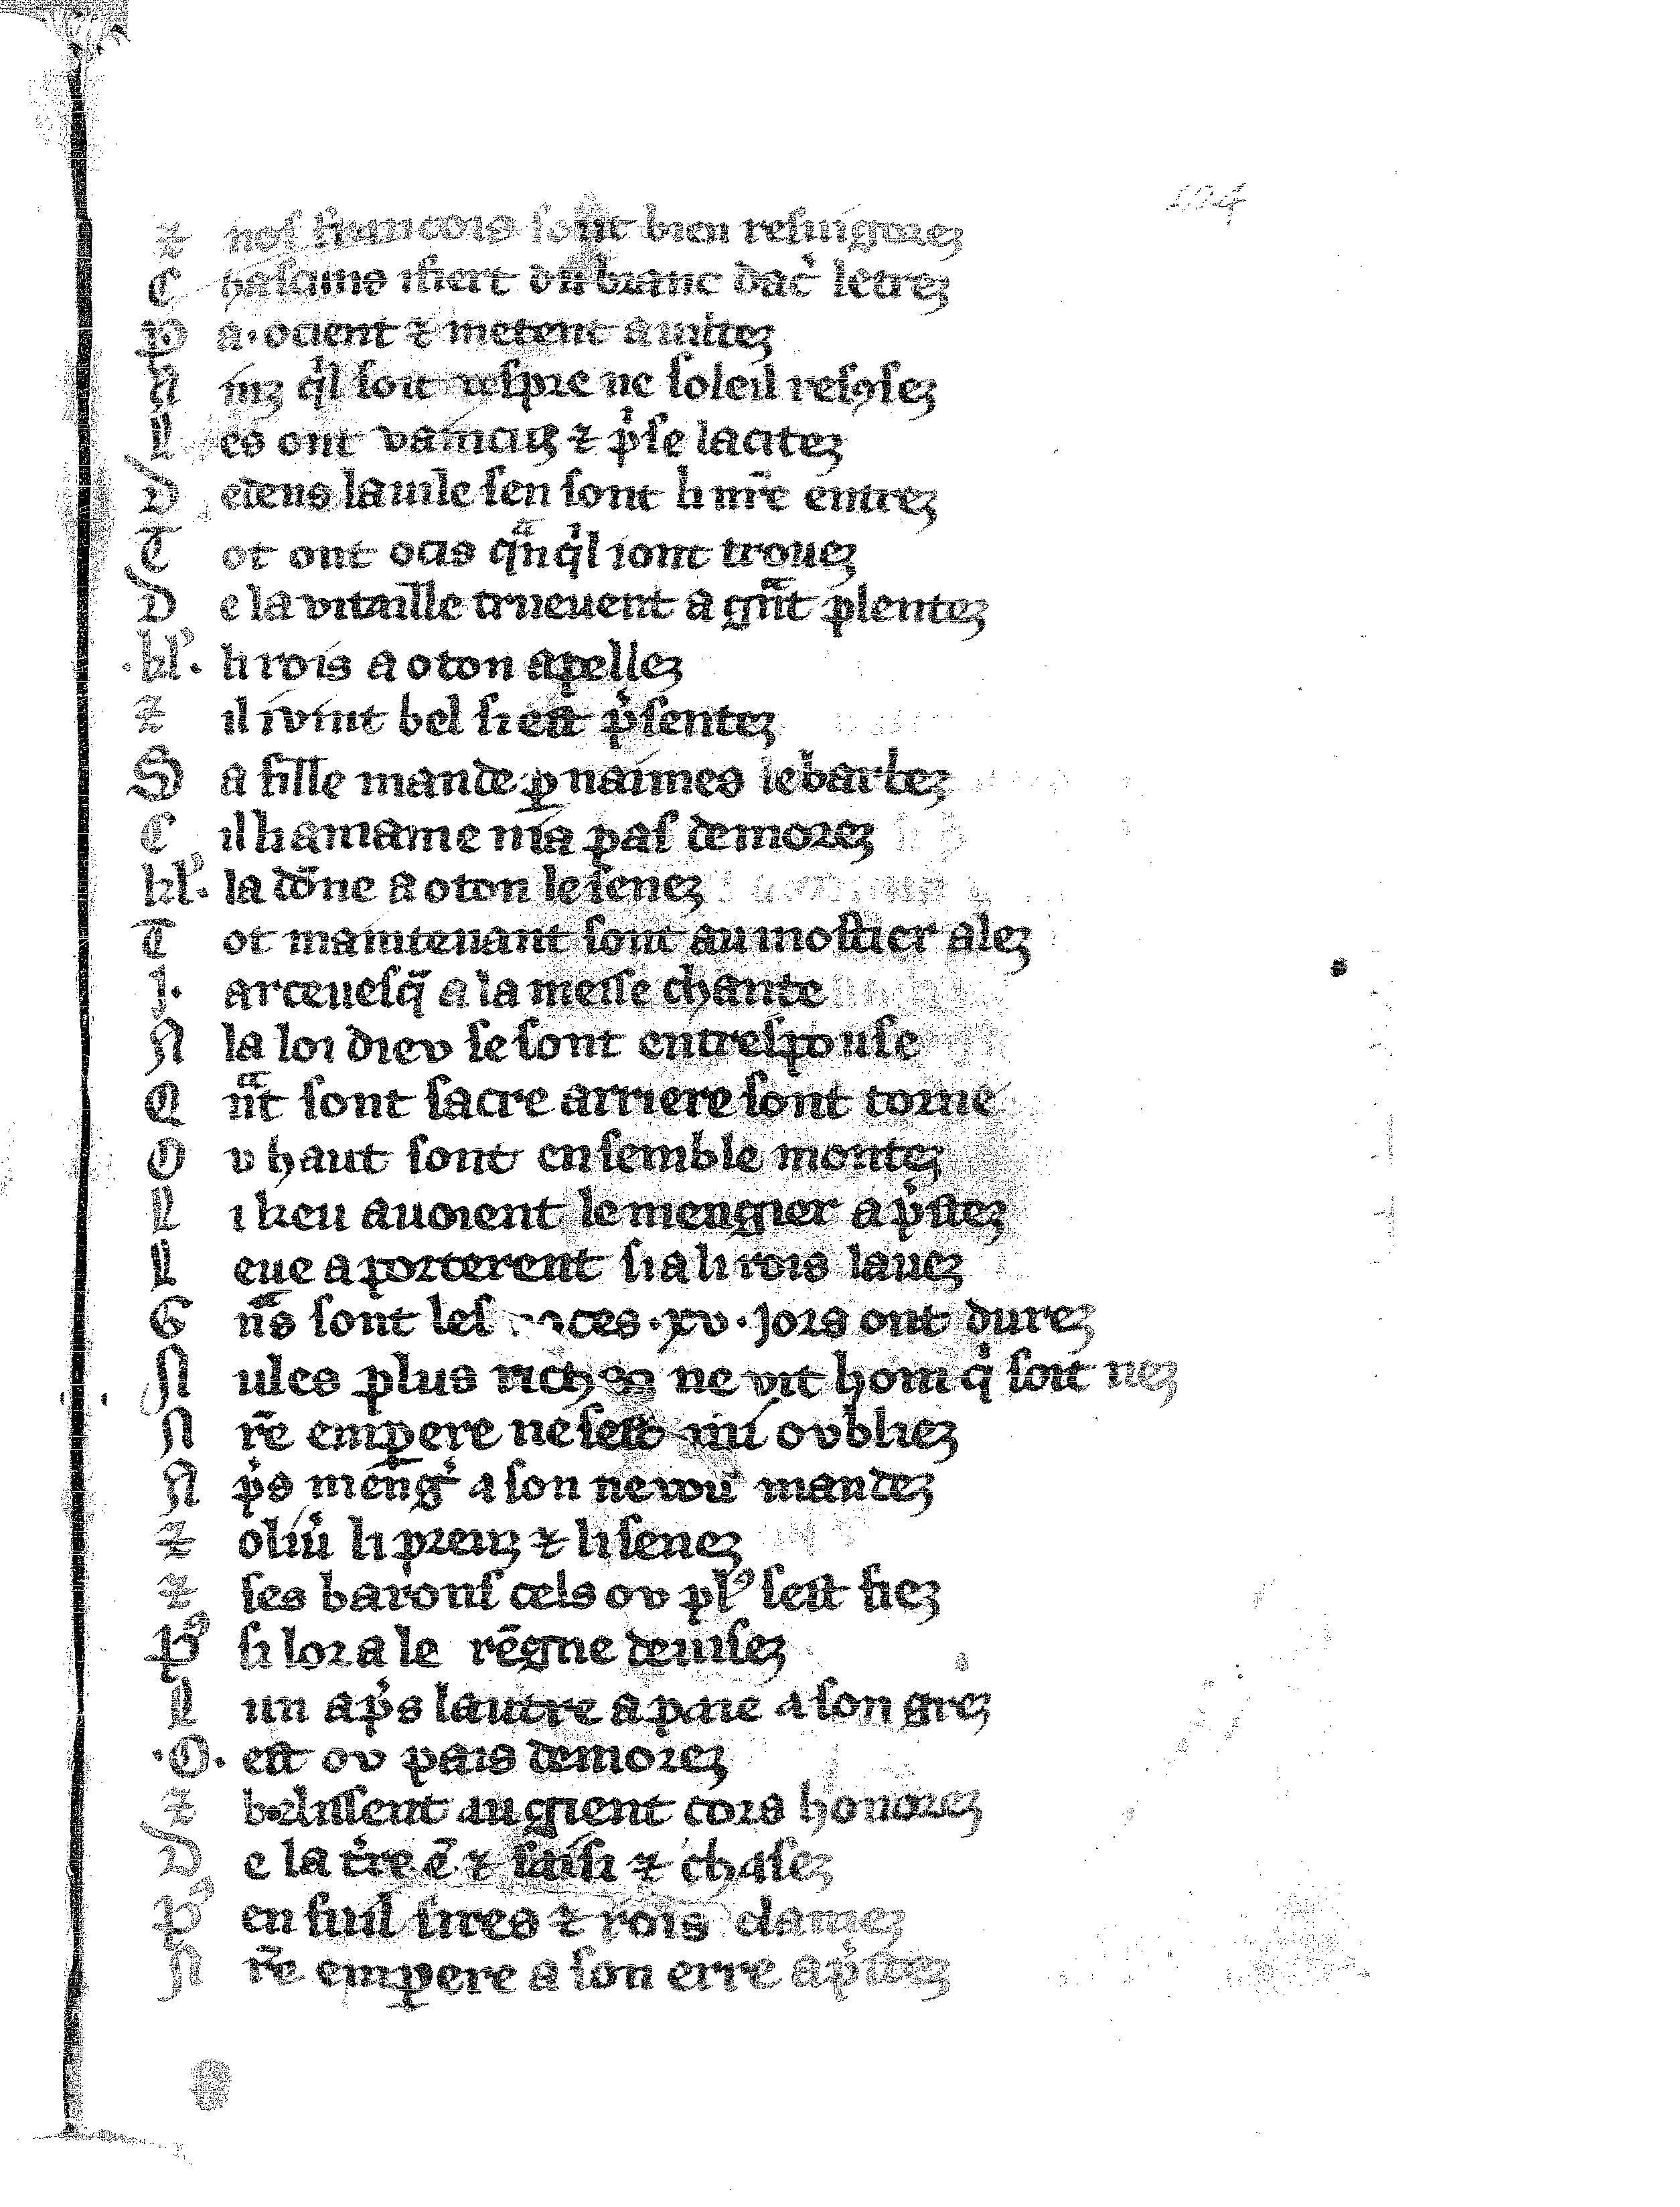 104
⁊ nos francois sont bien resuigorez
C hascuns ifiert du branc dac̾ letrez
P a · ocient ⁊ metent auiltez
A inz q̾l soit uespre ne soleil resꝯsez
L es ont vaincuz ⁊ p̾se lacitez
D edens lauile sen sont li nr̄e entrez
T ot ont ocis qͣnq̾l iont trouez
D e la vitaille trueuent a gͣnt plentez
·kl'· li rois a oton apellez
⁊ il ivint bel si est p̾sentez
S a fille mande ꝑ naimes lebarbez
C il li amaine nia pas demorez
kl'· la dōne a oton lesenez
T ot maintenant sont aumostier alez
j· arceuesq̄ a la messe chante
A la loi diev se sont entrespouse
Q ͣnt sont sacre arriere sont torne
O v haut sont ensemble montez
L i keu auoient lemengier ap̾stez
L eue aporterent si a li rois lauez
G ͣns sont les ces · xv · jors ont durez
N ules plus riches ne vit hom q̾ soit nez
N r̄e empere ne sest mi ovbliez
A p̾s meng̾ a son neuou mandez
⁊ oliu̾ li preuz ⁊ li senez
⁊ ses barons cels ov plꝰ sest fiez
Pꝰ si lor a le rēgne deuisez
L un ap̾s lautre a paie a son grez
·O· est ov pais demorez
⁊ belissent augient cors honorez
D e la t̾re ē ⁊ saisi ⁊ chasez
Pꝰ en fuil sires ⁊ rois clamez
N r̄e empere a son erre ap̾stez